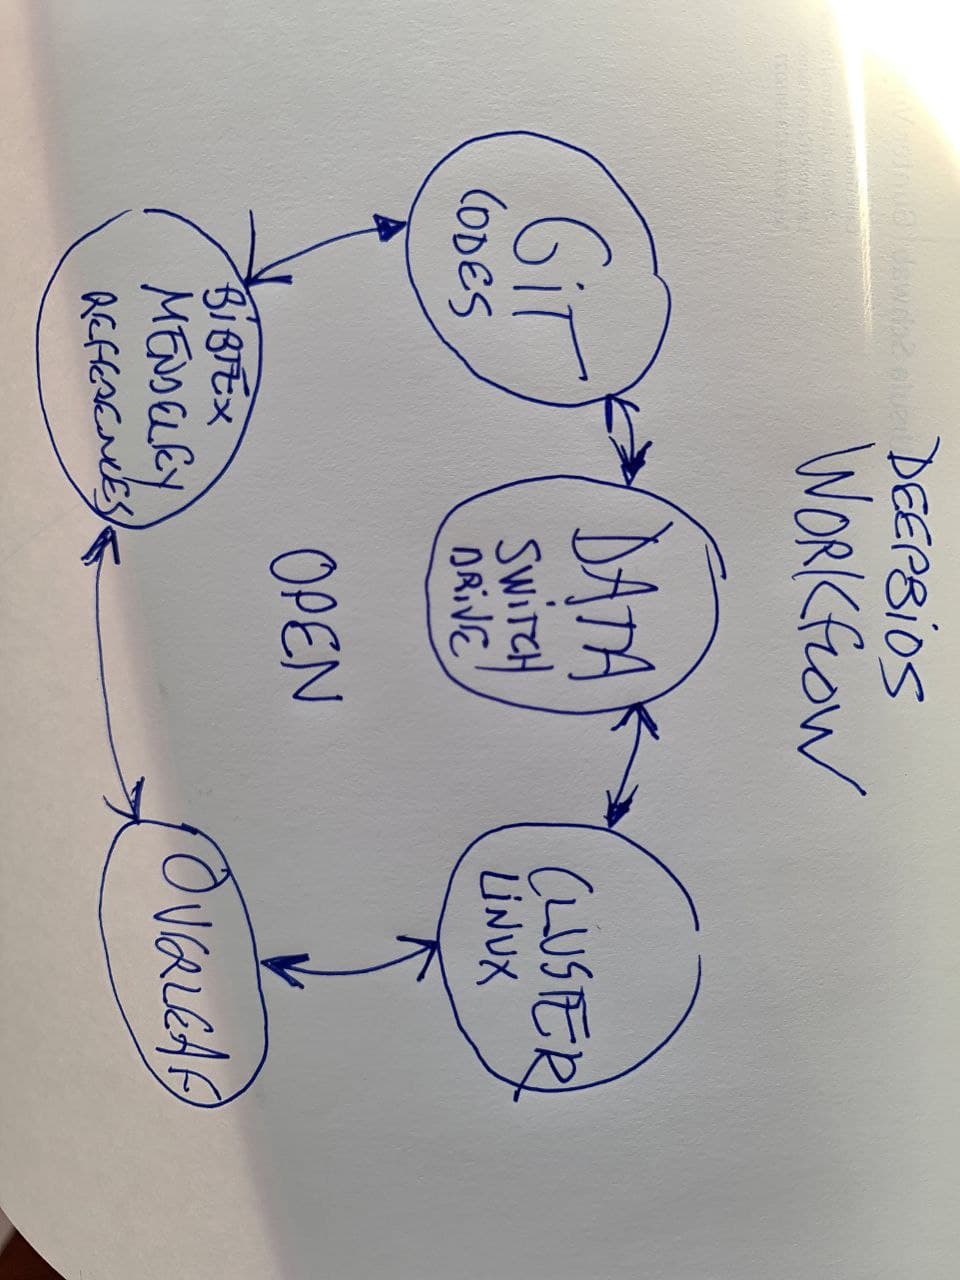 DEEPBIOS
WORKFLOW
GIT
CODES
DATA
SWITCH
DRIVE
CLUSTER
LINUX
OPEN
BIBTEX
MENDELEY
REFERENCES
OVERLEAF